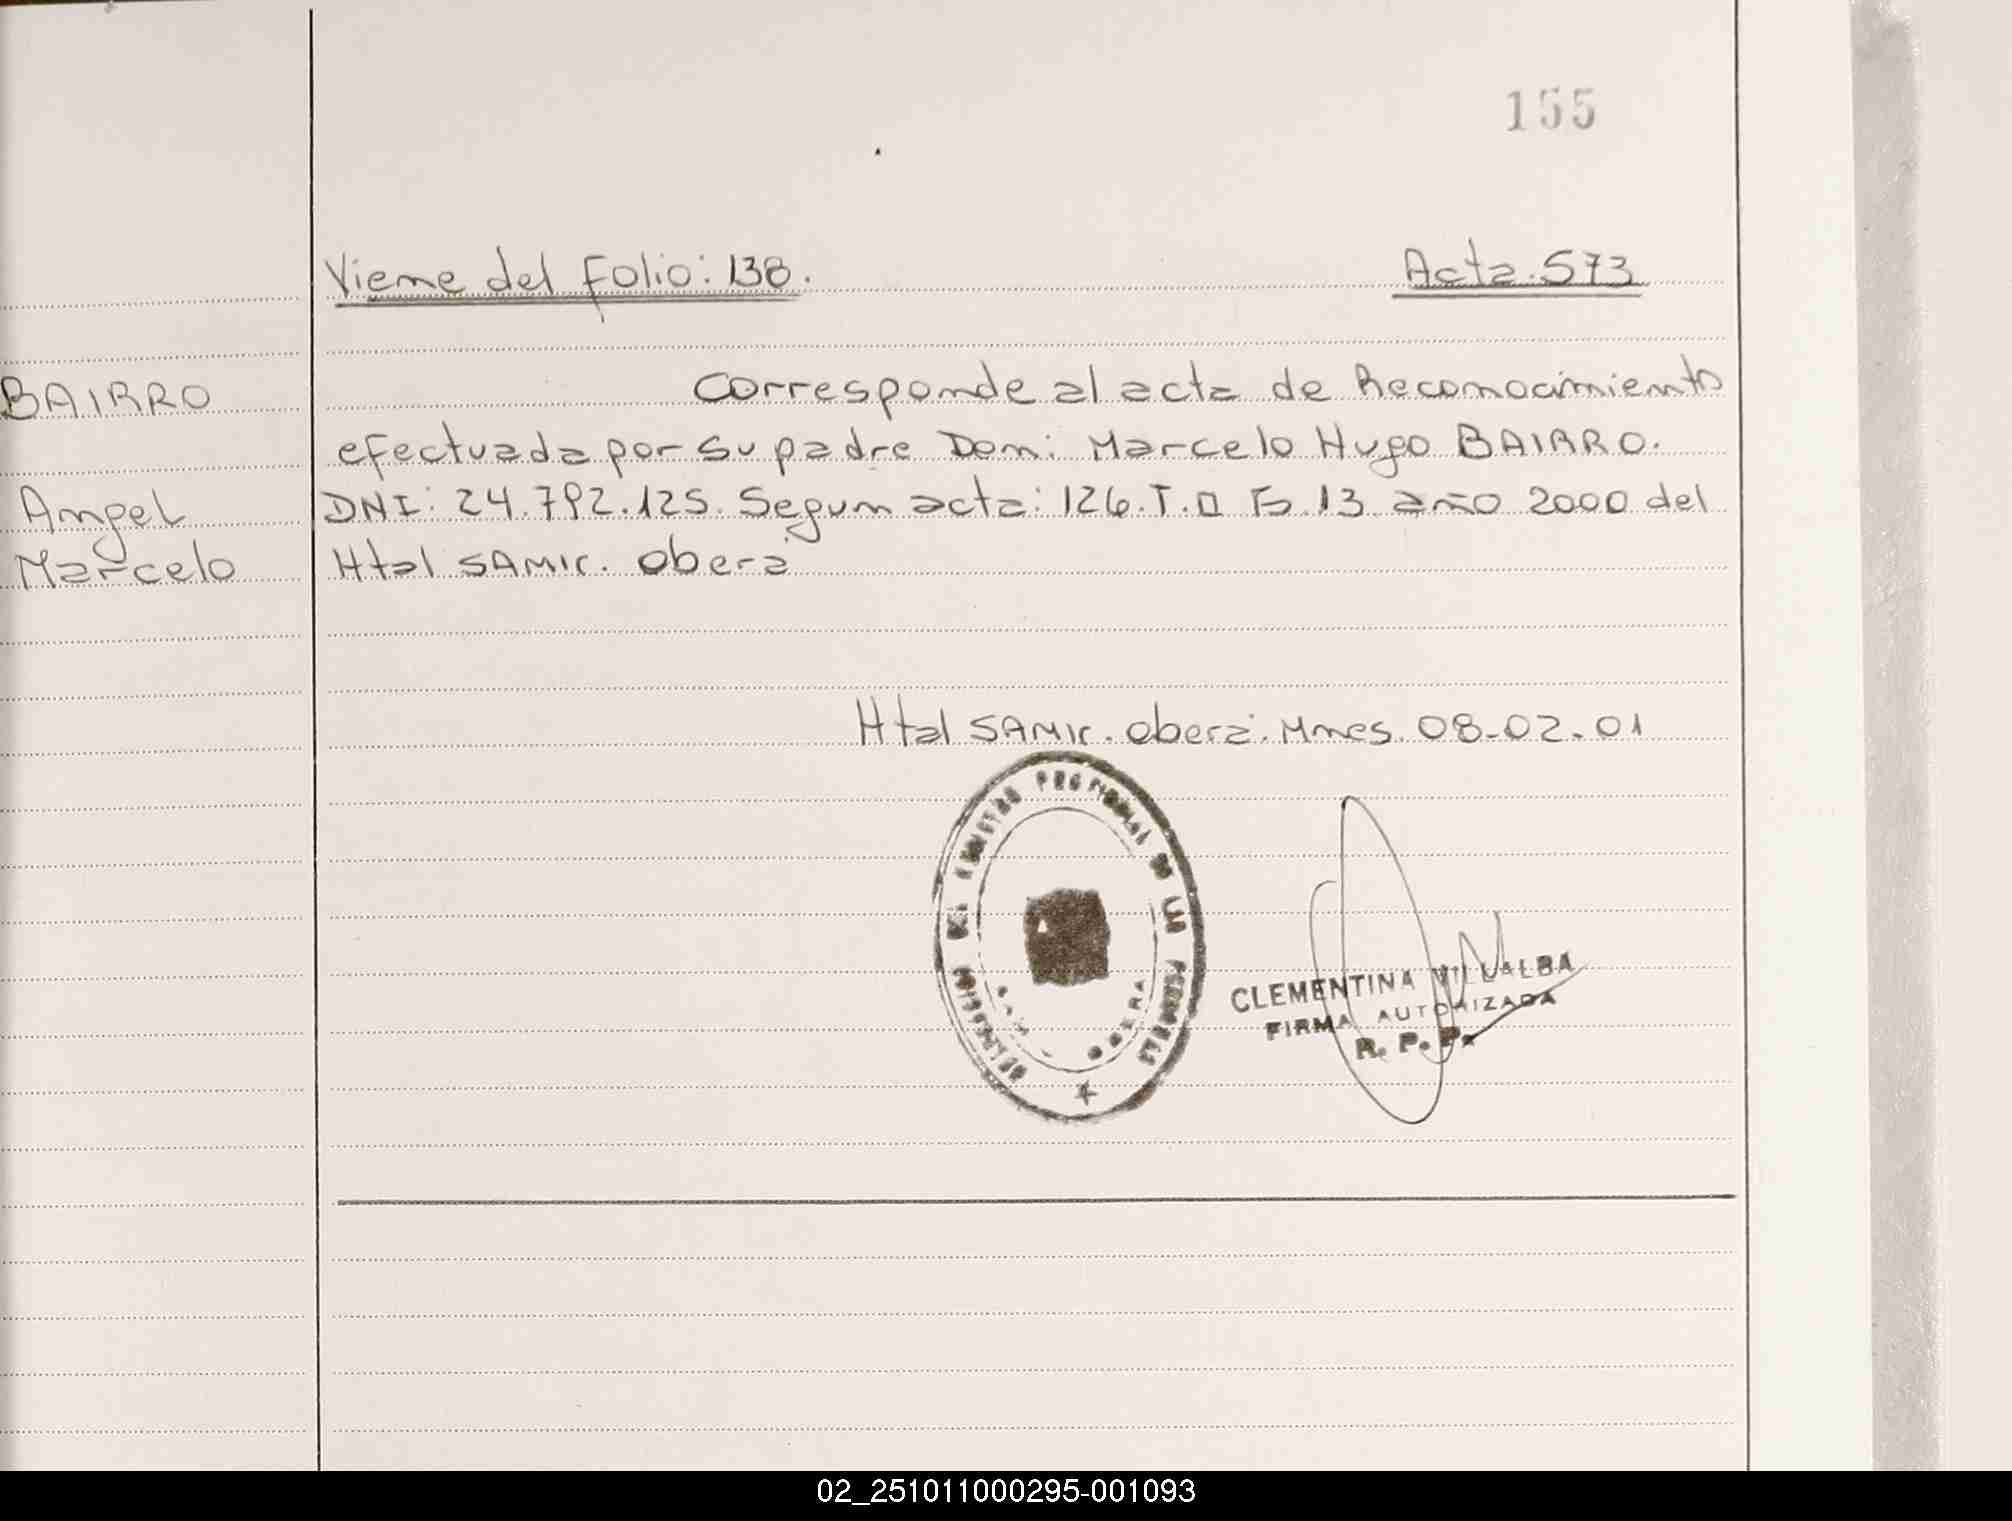 155
Viene del Folio: 138.
Acta. 573
BAIRRO
Angel
Marcelo
Corresponde al acta de Reconocimiento
efectuada por su padre Don: Marcelo Hugo BAIRRO.
DNI: 24.792.125. Segun acta: 126. T. 0 Fº. 13 año 2000 del
Htal SAMIC. Oberá
Htal SAMIC. Oberá. Mnes. 08-02-01
DELEGACION DEL REGISTRO PROVINCIAL DE LAS PERSONAS
OBERA
CLEMENTINA VILLALBA
FIRMA AUTORIZADA
R. P. P.
02_251011000295-001093